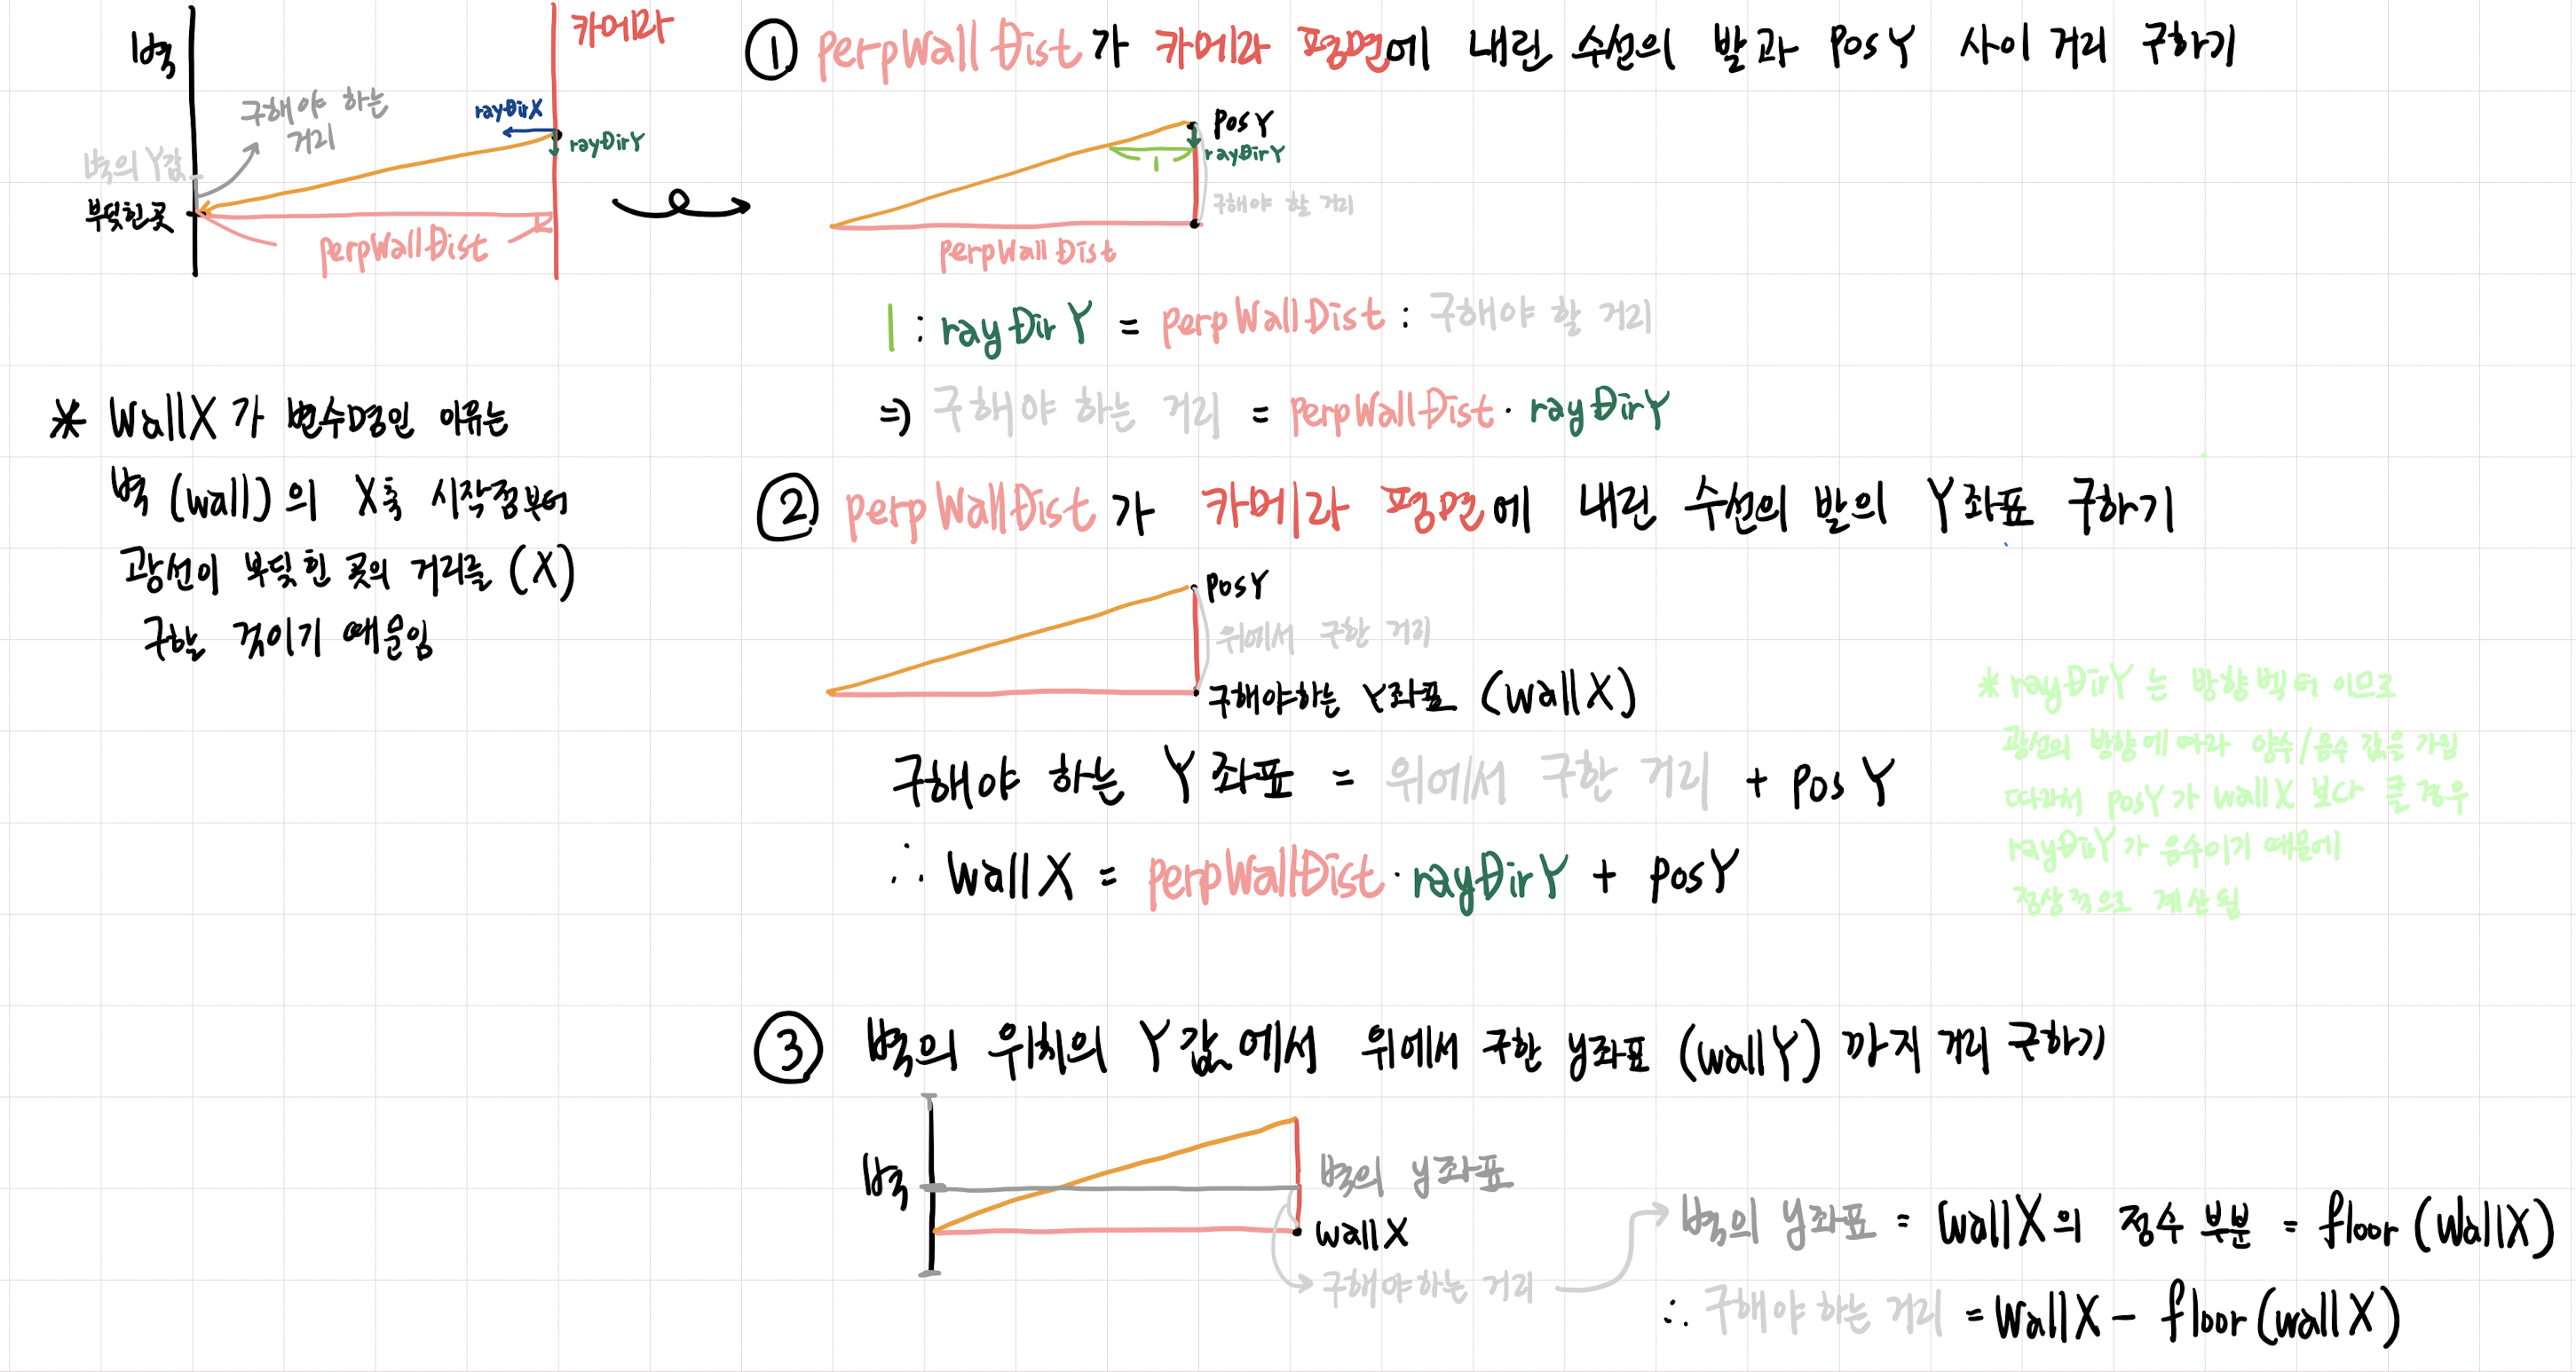 벽
카메라
구해야 하는
거리
rayDirX
rayDirY
벽의 Y값
부딪힌 곳
perpWallDist
* WallX가 변수명인 이유는
벽(wall)의 X축 시작점부터
광선이 부딪힌 곳의 거리를 (X)
구하는 것이기 때문임
① perpWallDist가 카메라 평면에 내린 수선의 발과 PosY 사이 거리 구하기
PosY
rayDirY
1
구해야 할 거리
perpWallDist
1 : rayDirY = perpWallDist : 구해야 할 거리
⇒ 구해야 하는 거리 = perpWallDist · rayDirY
② perpWallDist가 카메라 평면에 내린 수선의 발의 Y좌표 구하기
PosY
위에서 구한 거리
구해야하는 Y좌표 (WallX)
구해야 하는 Y좌표 = 위에서 구한 거리 + PosY
∴ WallX = perpWallDist · rayDirY + PosY
* rayDirY는 방향벡터 이므로
광선의 방향에 따라 양수/음수 값을 가짐
따라서 PosY가 WallX 보다 클 경우
rayDirY가 음수이기 때문에
정상적으로 계산됨
③ 벽의 위치의 Y값에서 위에서 구한 y좌표 (wallY) 까지 거리 구하기
벽
벽의 y좌표
WallX
구해야하는 거리
벽의 y좌표 = WallX의 정수 부분 = floor(WallX)
∴ 구해야 하는 거리 = WallX - floor(wallX)